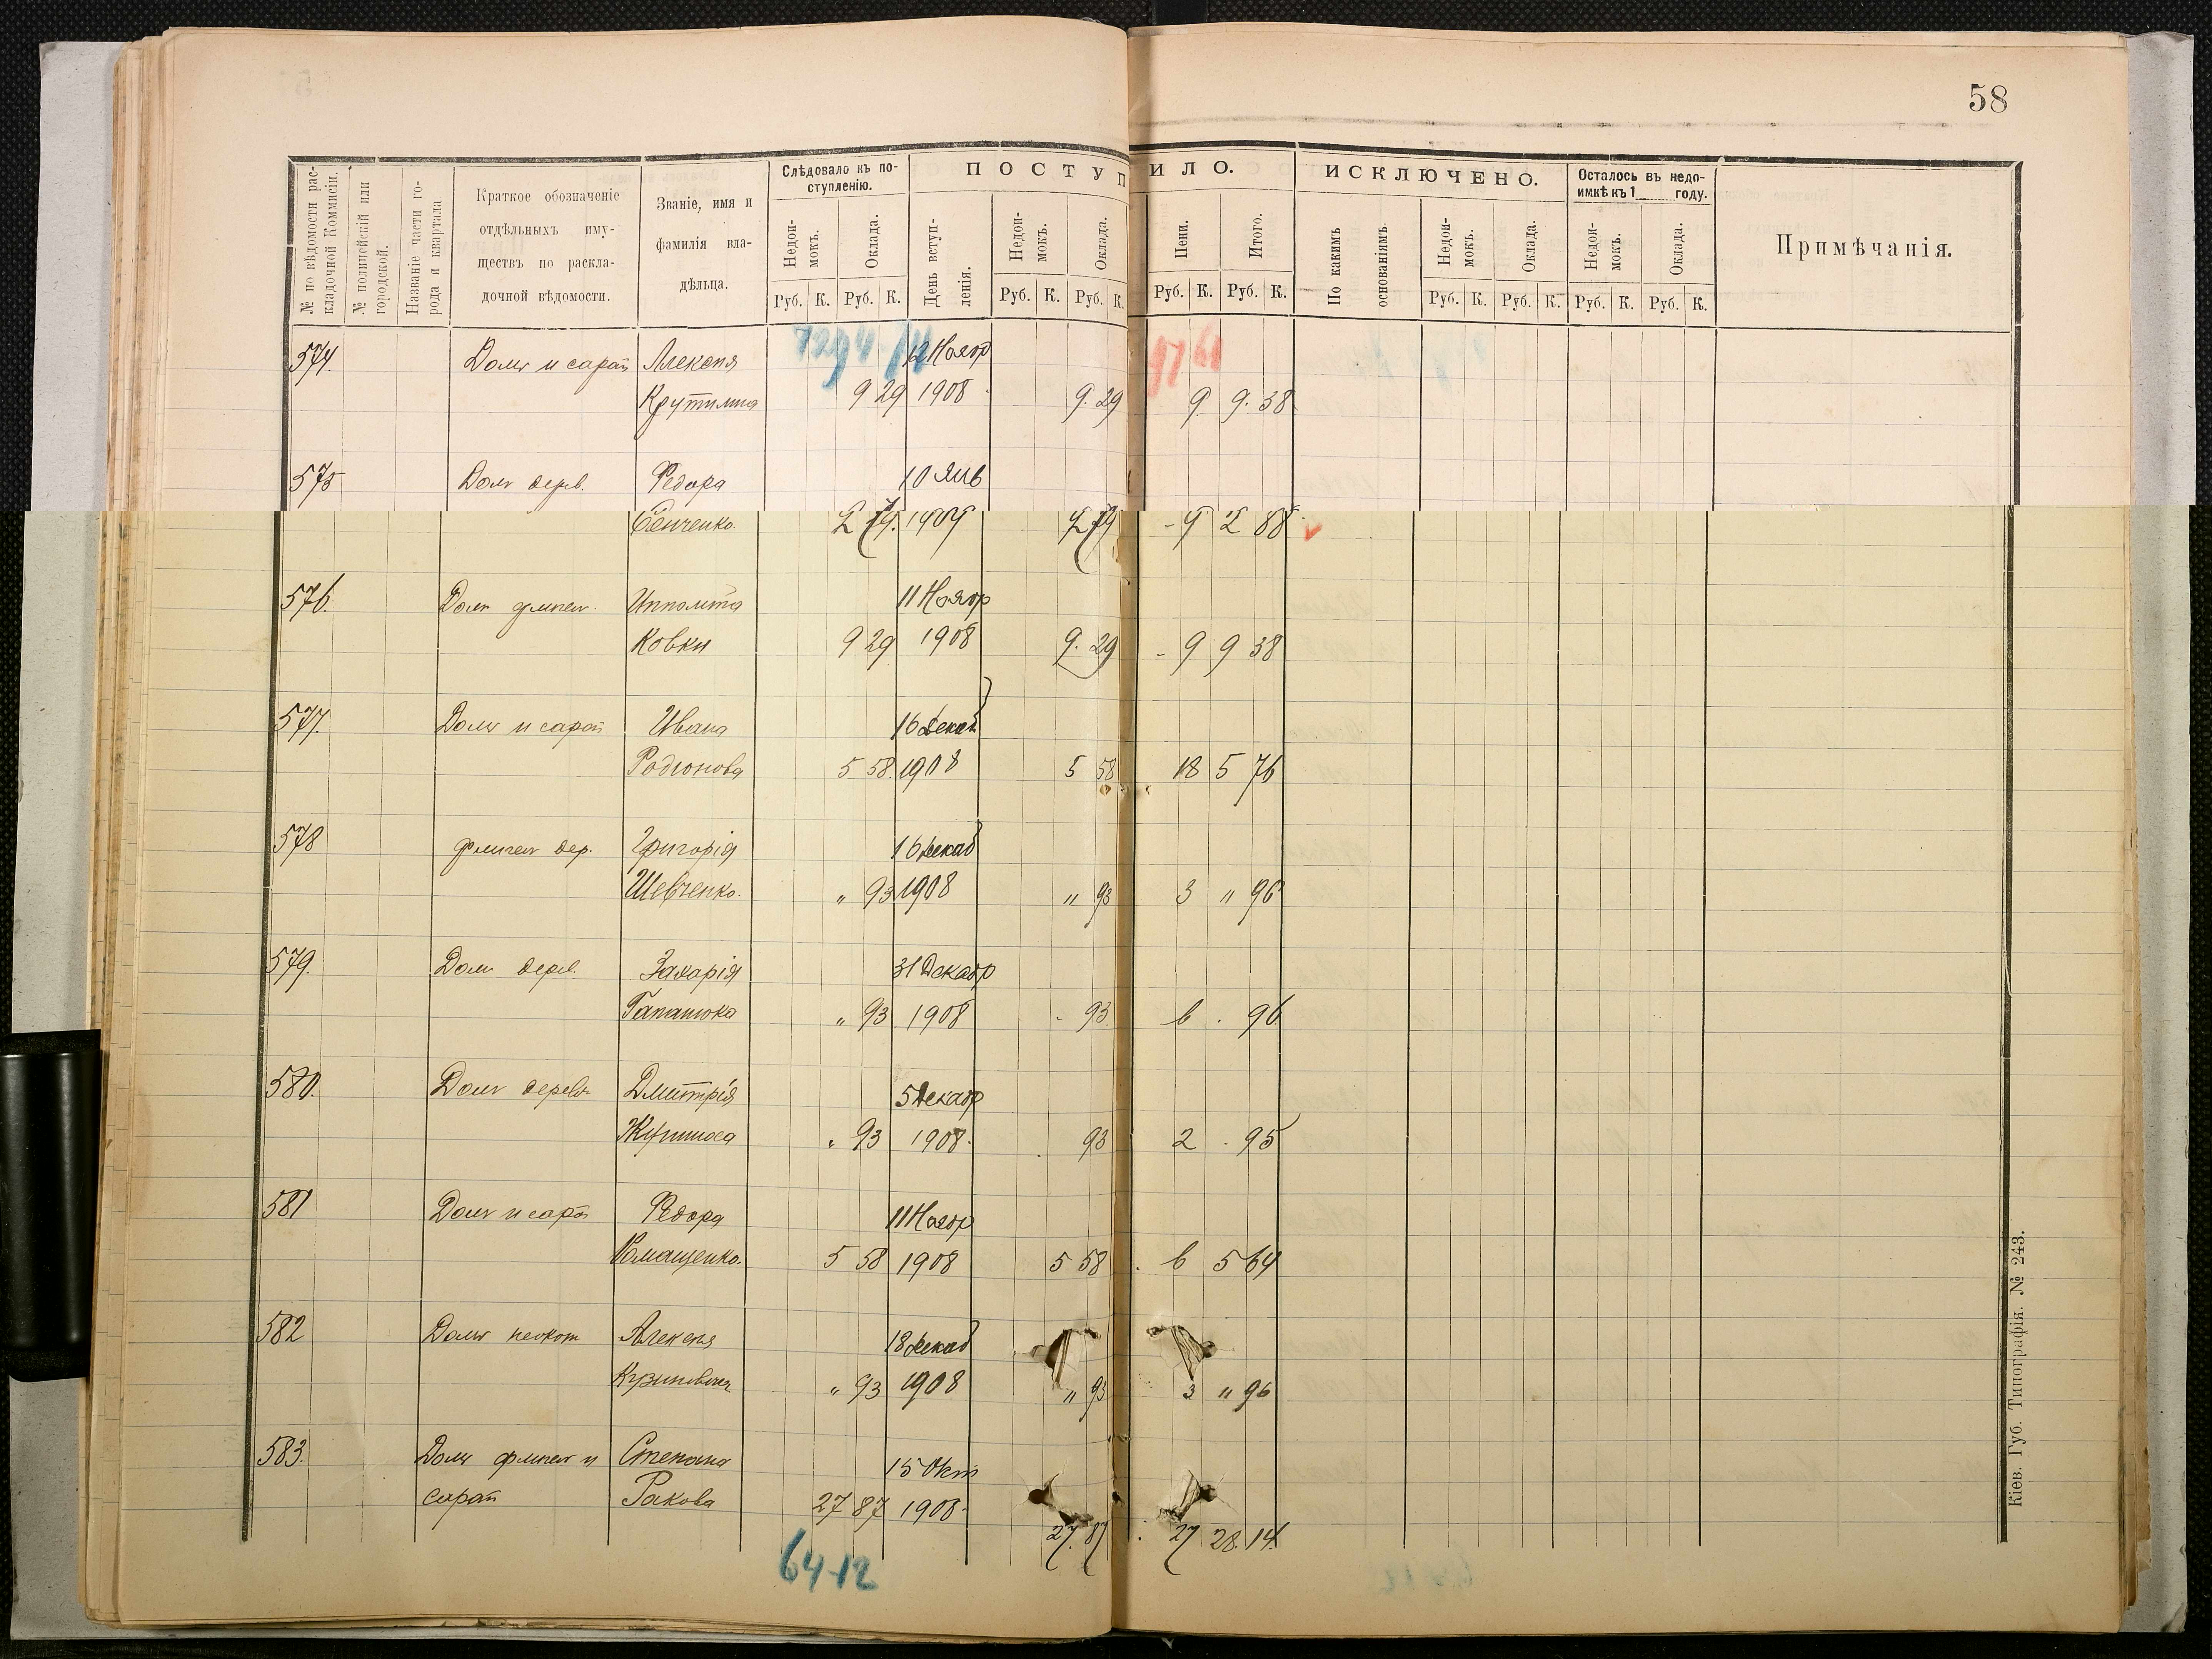 58
№ по вѣдомости рас-
кладочной Коммисіи.
№ полицейскій или
городской.
Названіе части го-
рода и квартала
Краткое обозначеніе
отдѣльныхъ иму-
ществъ по раскла-
дочной вѣдомости.
Званіе, имя и
фамилія вла-
дѣльца.
Слѣдовало къ по-
ступленію.
Недои-
мокъ.
Оклада.
Руб. К. Руб. К.
ПОСТУПИЛО.
День вступ-
ленія.
Недои-
мокъ.
Оклада.
Пени.
Итого.
Руб. К. Руб. К. Руб. К. Руб. К.
ИСКЛЮЧЕНО.
По какимъ
основаніямъ
Недои-
мокъ.
Оклада.
Руб. К. Руб. К.
Осталось въ недо-
имкѣ къ 1 году.
Недои-
мокъ.
Оклада.
Руб. К. Руб. К.
Примѣчанія.
574. Домъ и сарай Алексѣя 12 Нояр
Крутилина 9 29 1908 9. 29 9 9. 38
575 Домъ дерев. Федора 10 Янв
Сенченко. 2 79. 1909 2 79 - 9 2 88
576. Домъ флигел. Ипполита 11 Нояр
Ковки 9 29 1908 9. 29 - 9 9 38
577. Домъ и сарай Ивана 16 Декаб
Родіонова 5 58. 1908 5 58 18 5 76
578 флигел дер. Григорія 16 Декаб
Шевченко. " 93 1908 " 93 3 " 96
579. Домъ дерев. Захарія 31 Декабр
" 93 1908 93. 6 . 96
580. Домъ дерев. Дмитрія 5 Декабр
" 93 1908. 93 2 . 95
581 Домъ и сарай Федора 11 Нояр
5 58 1908 5 58 6 5 64
582 Домъ Алексѣя 18 Декаб
" 93 1908 " 93 3 " 96
583. Домъ флигел и Степана 15 Окт
сарай Ракова 27 87 1908.
27. 87 27 28. 14.
64-12
Кіев. Губ. Типографія. № 243.